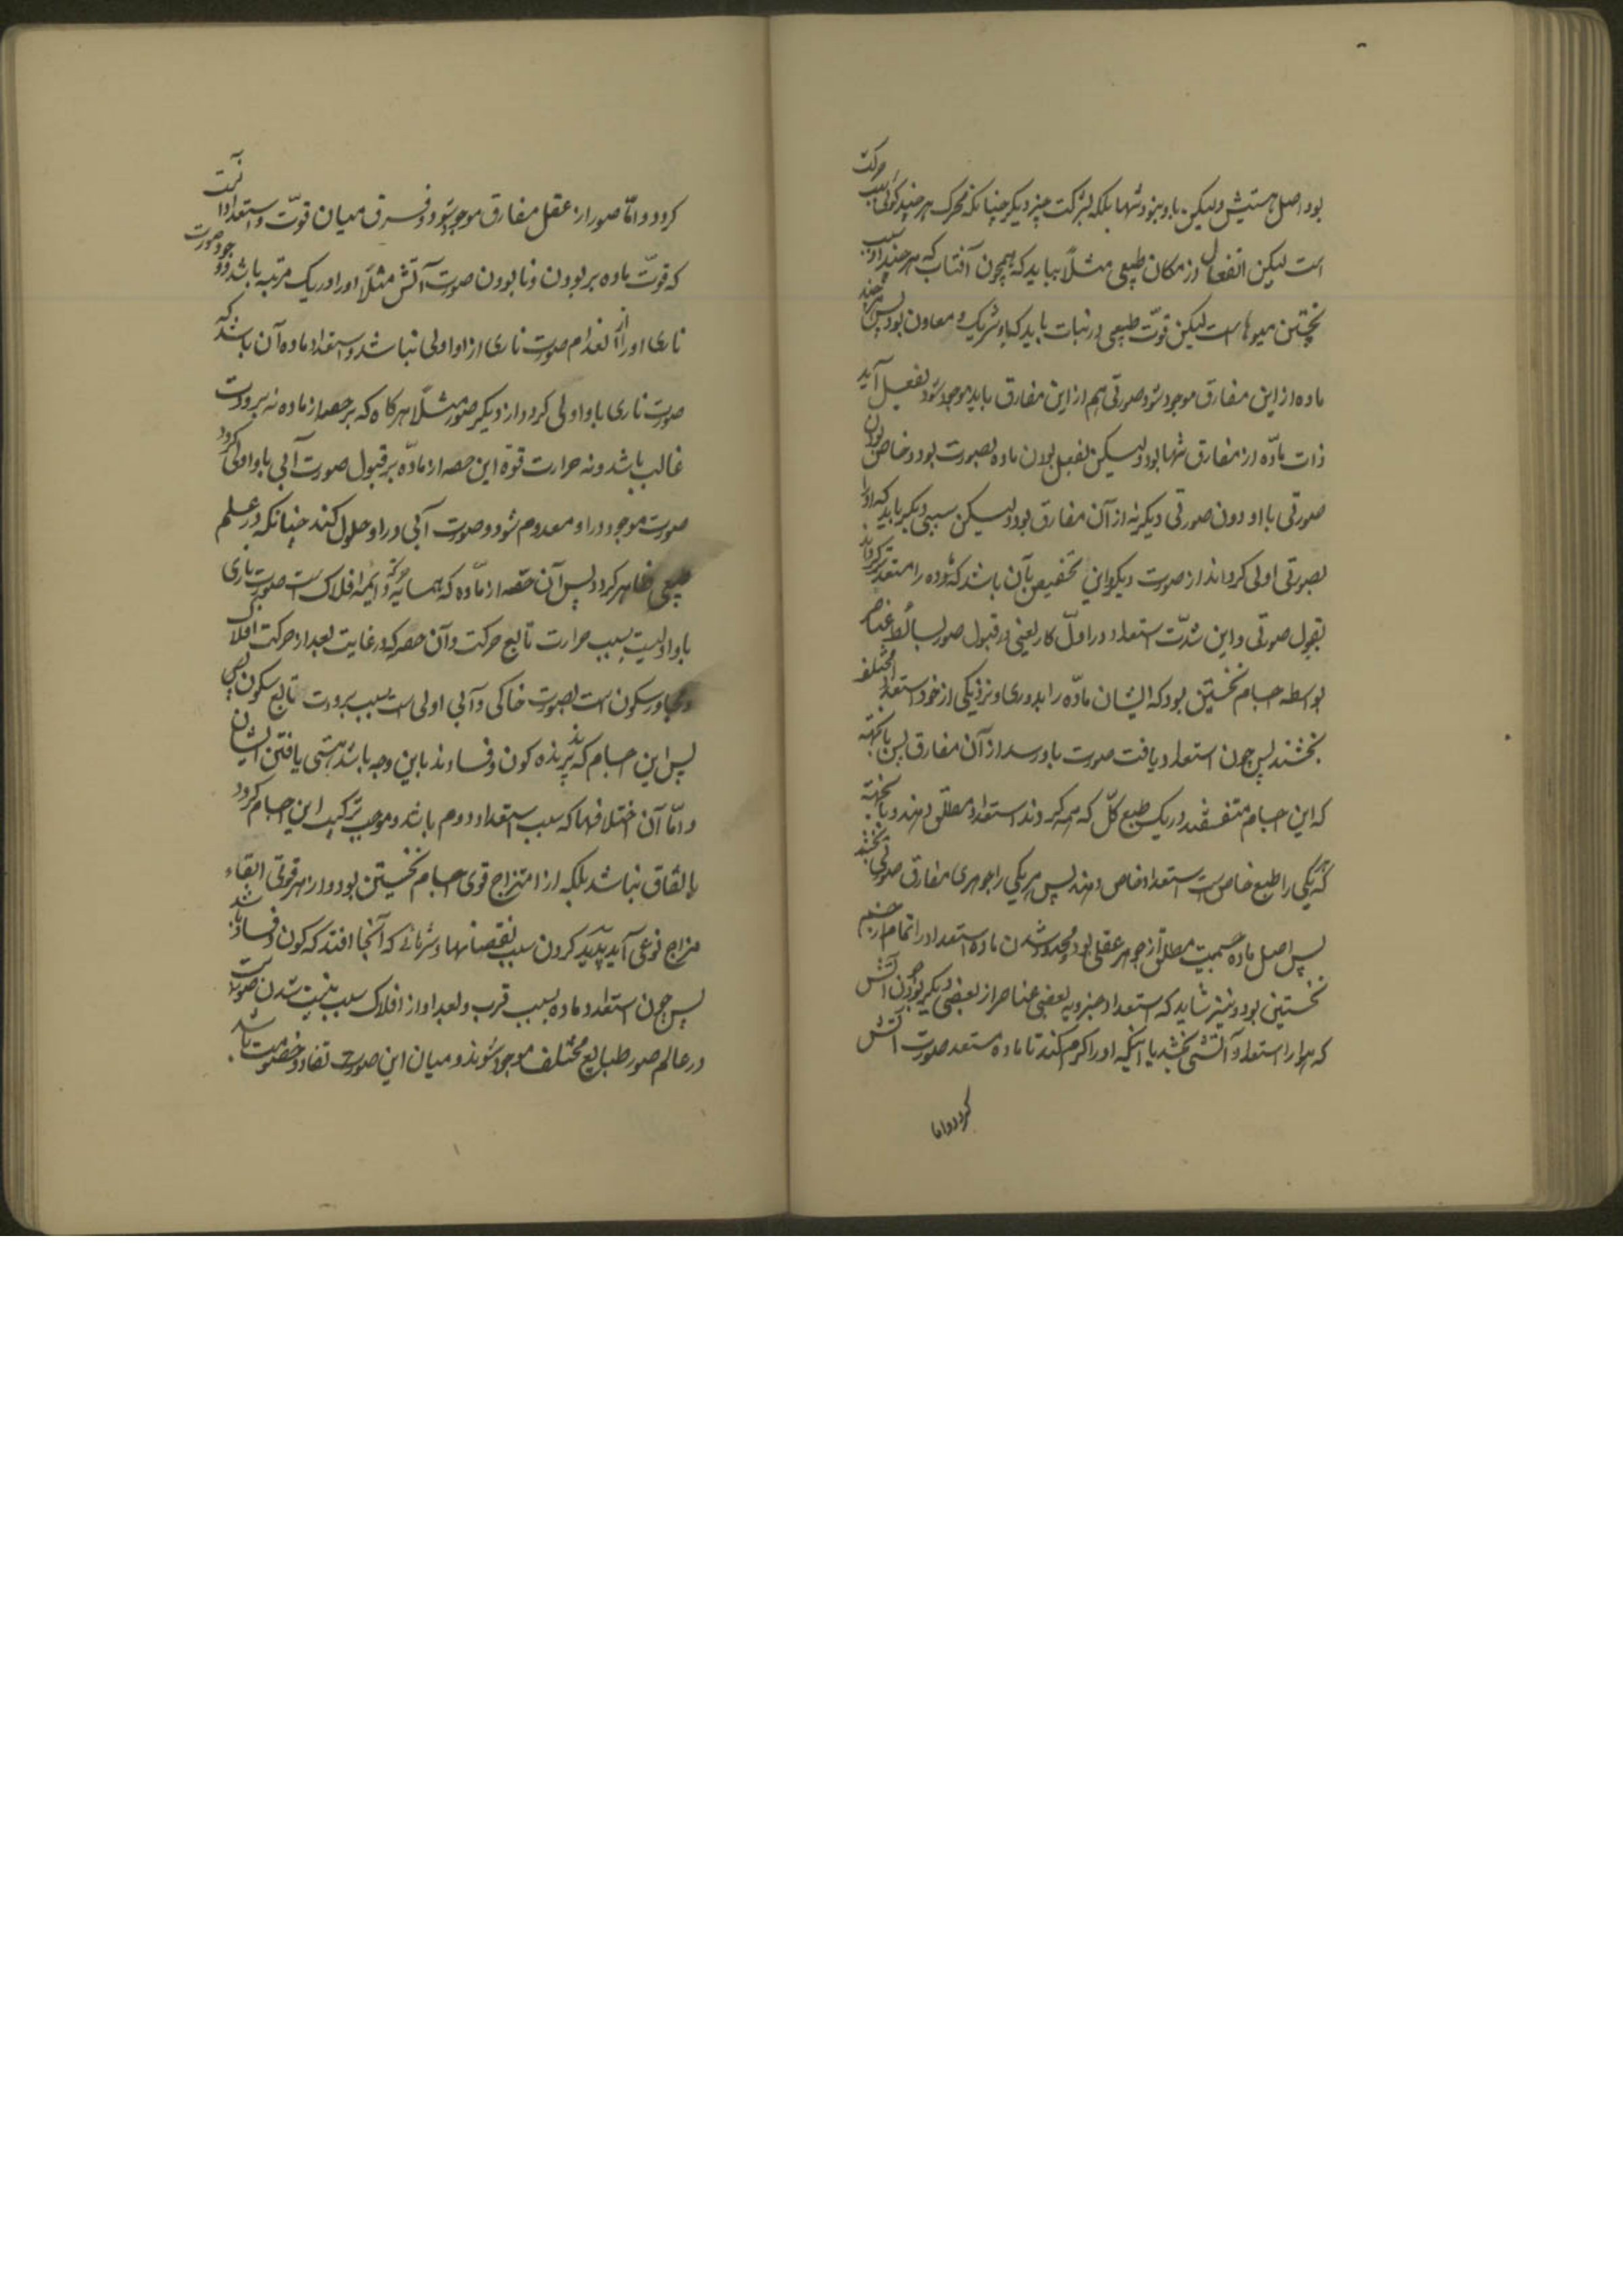 بود اصل هستیش ولیکن باو نبود تنها بلکه بشرکت چیز دیگر چنانکه محرک هر چند کوئی سبب حرکت
است لیکن انفعال در مکان طبیعی مثلاً بباید که همچون آفتاب که هر چند او سبب
پختن میوهاست لیکن قوّت طبیعی در نبات باید که با او شریک و معاون بود پس هر چند
ماده از این مفارق موجود شود و صورتی هم از این مفارق باید موجود شود بفعل آید
ذات مادّه از مفارق تنها بود ولیکن بفعل بودن ماده بصورت بود و خاص بودن
صورتی با او دون صورتی دیگر نه از آن مفارق بود ولیکن سببی دیگر باید که او را
بصورتی اولی گرداند از صورت دیگر و این تخصیص بآن باشد که ماده را مستعدتر گرداند
بقبول صورتی و این شدّت استعداد در اوّل کار یعنی در قبول صور بسائط عناصر
بواسطه اجسام نخستین بود که ایشان مادّه را بدوری و نزدیکی از خود استعداد مختلف
بخشند پس چون استعداد یافت صورت باو رسد از آن مفارق پس بآنجهت
که این اجسام متفقند در یک طبع کلّ که همه گردند استعداد مطلق دهند و بآنجهت
که هر یکی را طبع خاص است استعداد خاص دهند پس هر یکی را جوهری مفارق صورتی بخشد
پس اصل ماده جسمیت مطلق از جوهر عقلی بود و محدود شدن ماده استعداد را تمام از جسم
نخستین بود و نیز شاید که استعداد جزویه بعضی عناصر از بعضی دیگر بود چون آتش
که هوا را استعداد آتشی بخشد با اینکه او را گرم کند تا ماده مستعد صورت آتش
گردد و اما
گردد و امّا صور از عقل مفارق موجود شود و فرق میان قوّت و استعداد آنست
که قوّت ماده بر بودن و نابودن صورت آتش مثلاً او را در یک مرتبه باشد و وجود صورت
ناری او را از انعدام صورت ناری از او اولی نباشد و استعداد ماده آن باشد که
صورت ناری باو اولی گردد از دیگر صور مثلاً هرگاه که بر حصه از ماده نه برودت
غالب باشد و نه حرارت قوّه این حصه از مادّه بر قبول صورت آبی باو اولی گردد
صورت موجود در او معدوم شود و صورت آبی در او حلول کند چنانکه در علم
طبیعی ظاهر گردد پس آن حصّه از مادّه که همسایه حرکة دائمه افلاک است صورت ناری
باو اولیست بسبب حرارت تابع حرکت و آن حصه که در غایت بعد از حرکت افلاک
و مجاور سکون است بصورت خاکی و آبی اولی است بسبب برودت تابع سکون پس
پس این اجسام که پذیرنده کون و فسادند باین وجه باشد هستی یافتن ایشان
و امّا آن اختلافها که سبب استعداد دوم باشد و موجب ترکیب این اجسام گردد
باتفاق نباشد بلکه از امتزاج قوی اجسام نخستین بود و از هر قوتی القاء
مزاج نوعی آید پدید کردن سبب نقصانها و شرهائی که آنجا افتد که کون و فساد باشد
پس چون استعداد ماده بسبب قرب و بعد او از افلاک سبب نیست شدن صورتست
در عالم صور طبایع مختلف موجود شوند و میان این صورت تضاد و خصومت باشد